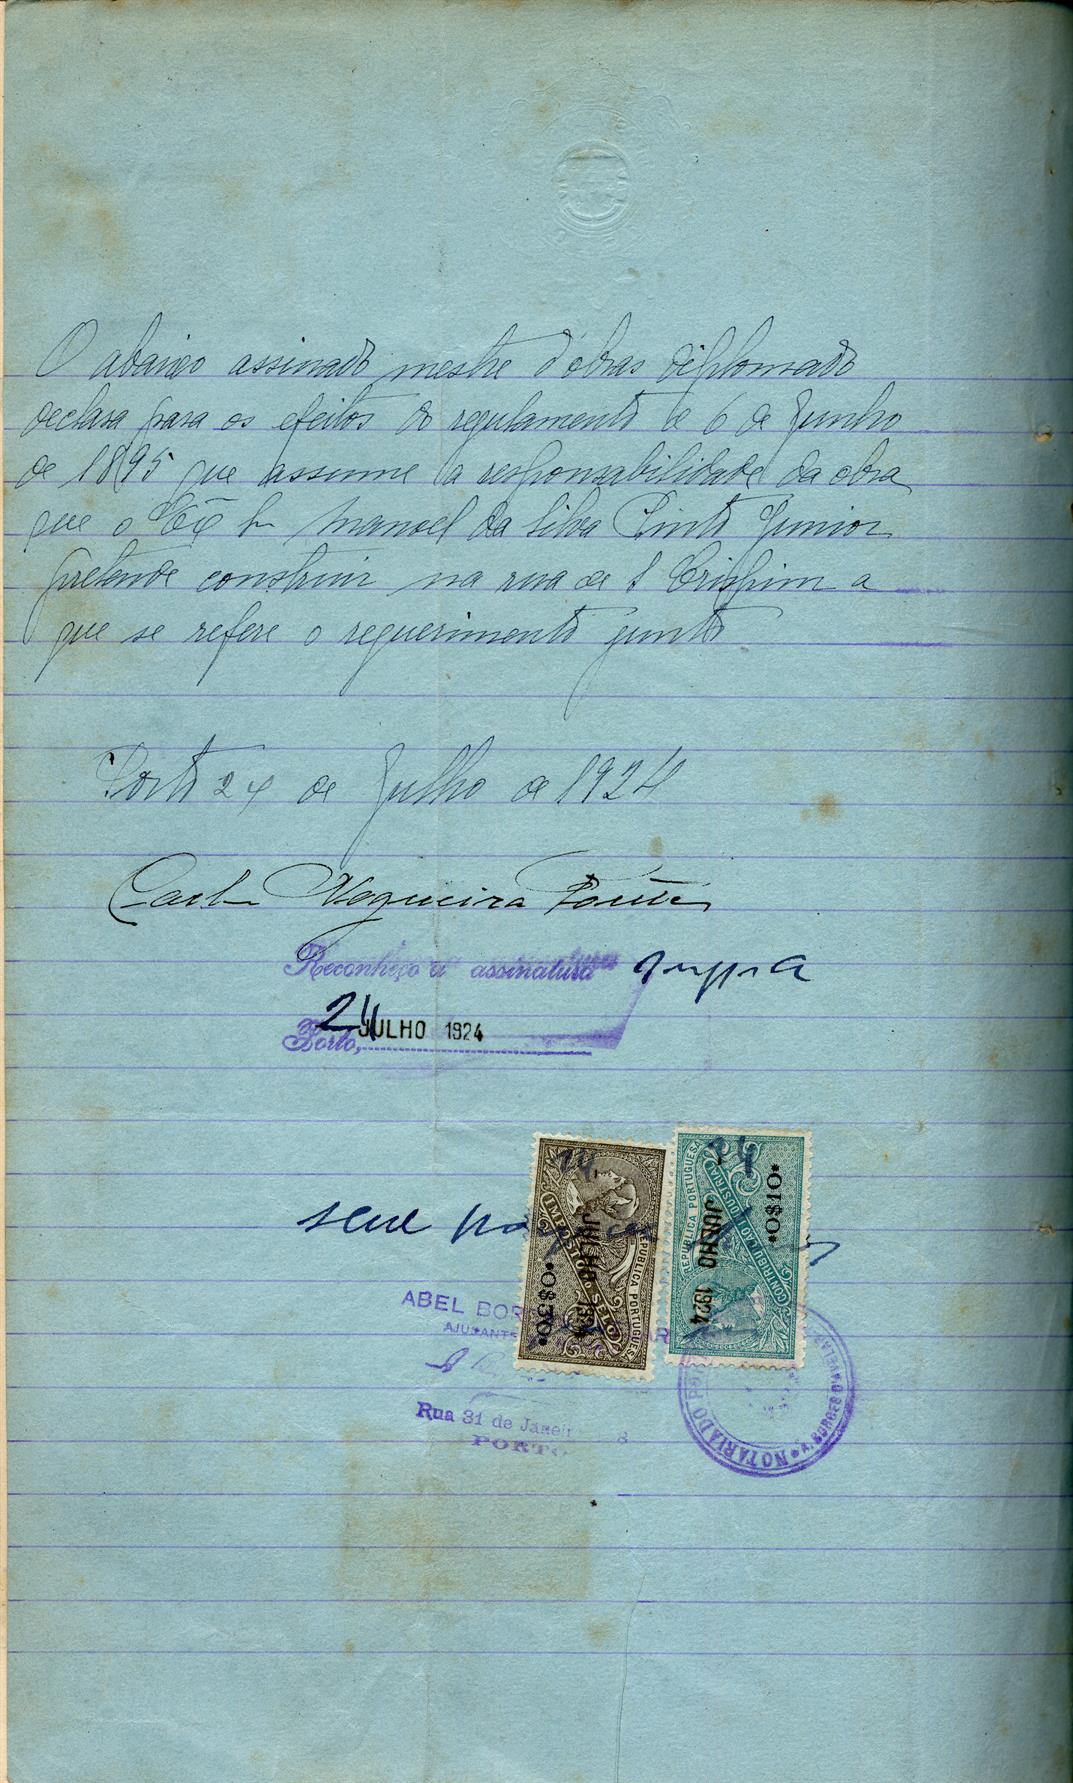 O abaixo assinado mestre d'obras diplomado
declara para os efeitos do regulamento de 6 de Junho
de 1895 que assume a responsabilidade da obra
que o Manoel da Silva Pinto Junior
pretende construir na rua de S Crispim a
que se refere o requerimento junto
Porto 24 de Julho de 1924
Carlos Nogueira
Reconheço a assinatura supra
Porto, 24 JULHO 1924
24 - JULHO 1924
REPUBLICA PORTUGUESA
IMPOSTO DO SELO
•0$30•
24 - JULHO 1924
REPUBLICA PORTUGUESA
CONTRIBUIÇÃO INDUSTRIAL
•0$10•
ABEL
AJUDANTE
Rua 31 de Janei 8
PORTO
NOTARIADO
A. BORGES D'AVELAR